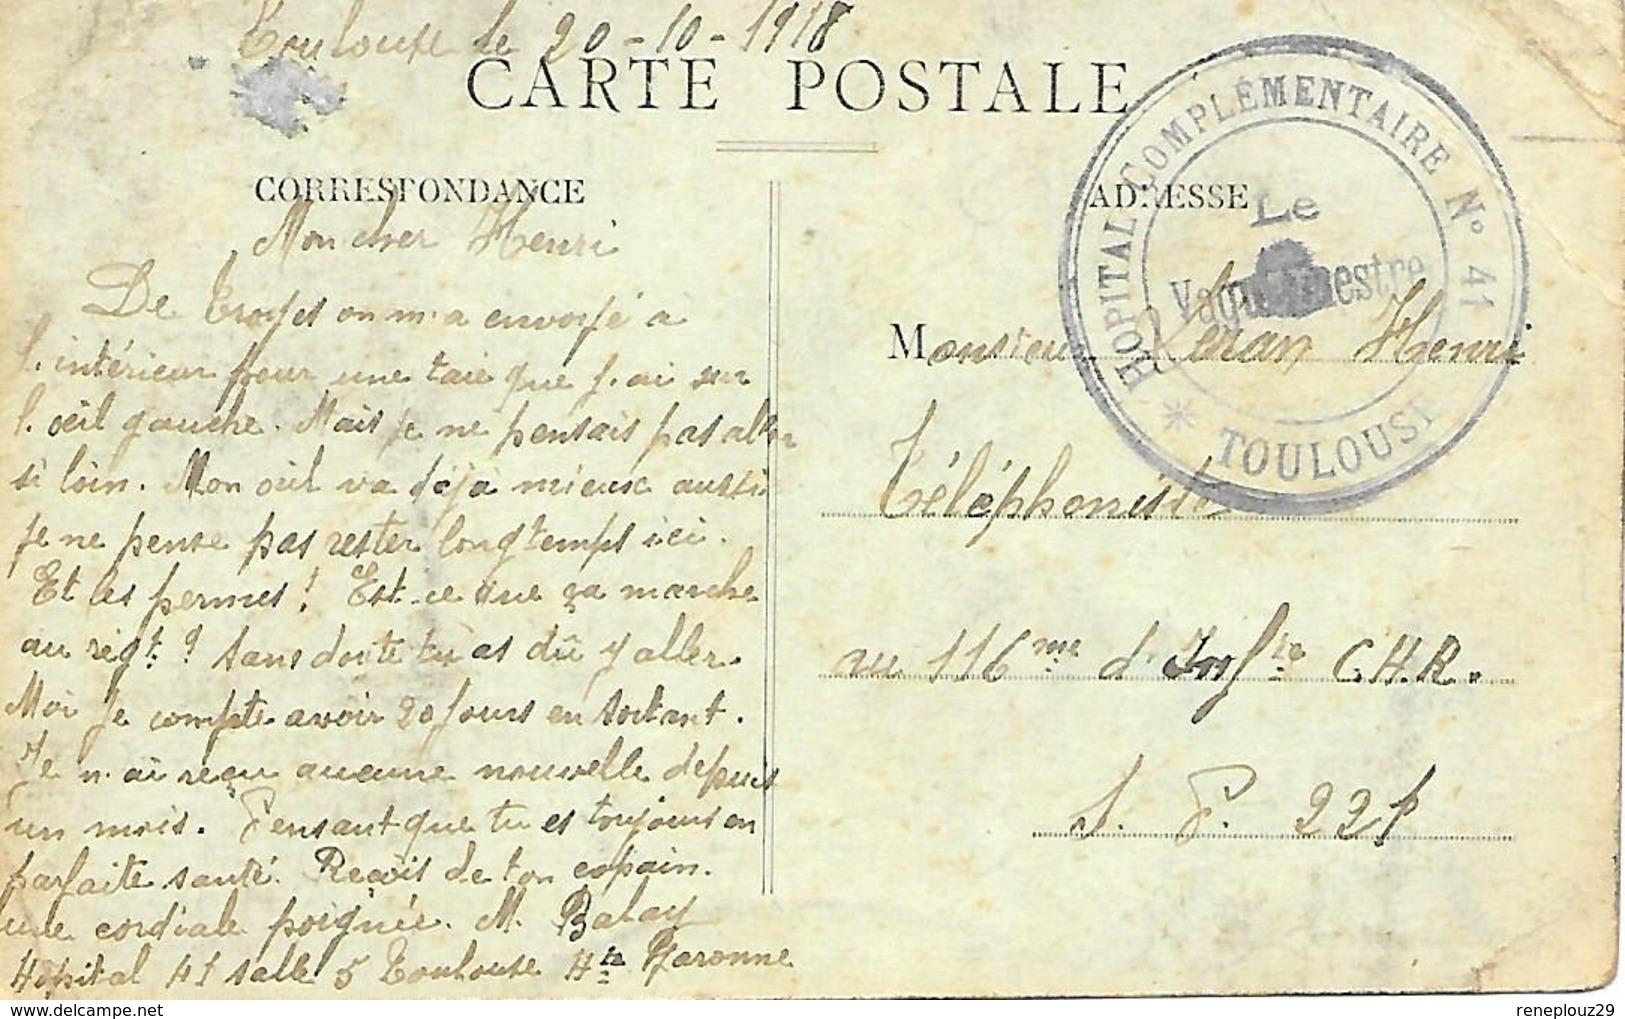 Toulouse le 20-10-1918
CARTE POSTALE
CORRESPONDANCE
Mon cher Henri
De Troyes on m'a envoyé à
l'intérieur pour une taie que j'ai sur
l'oeil gauche. Mais je ne pensais pas aller
si loin. Mon oeil va déjà mieux aussi
je ne pense pas rester longtemps ici.
Et les permes! Est-ce que ça marche
au régt? Sans doute tu as dû y aller.
Moi je compte avoir 20 jours en sortant.
Je n'ai reçu aucune nouvelle depuis
un mois. Pensant que tu es toujours en
parfaite santé. Reçois de ton copain.
une cordiale poignée. M. Balay
Hôpital 41 salle 5 Toulouse Hte Garonne
ADRESSE
HOPITAL COMPLÉMENTAIRE N° 41
* TOULOUSE
Le
Vaguemestre
Monsieur Henri
Téléphoniste
au 116me d'Infie C.H.R.
S. P. 221
reneplouz29